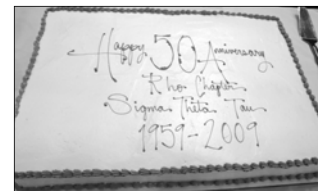 Happy 50 Anniversary
Rho Chapter
Sigma Theta Tau
1959-2009